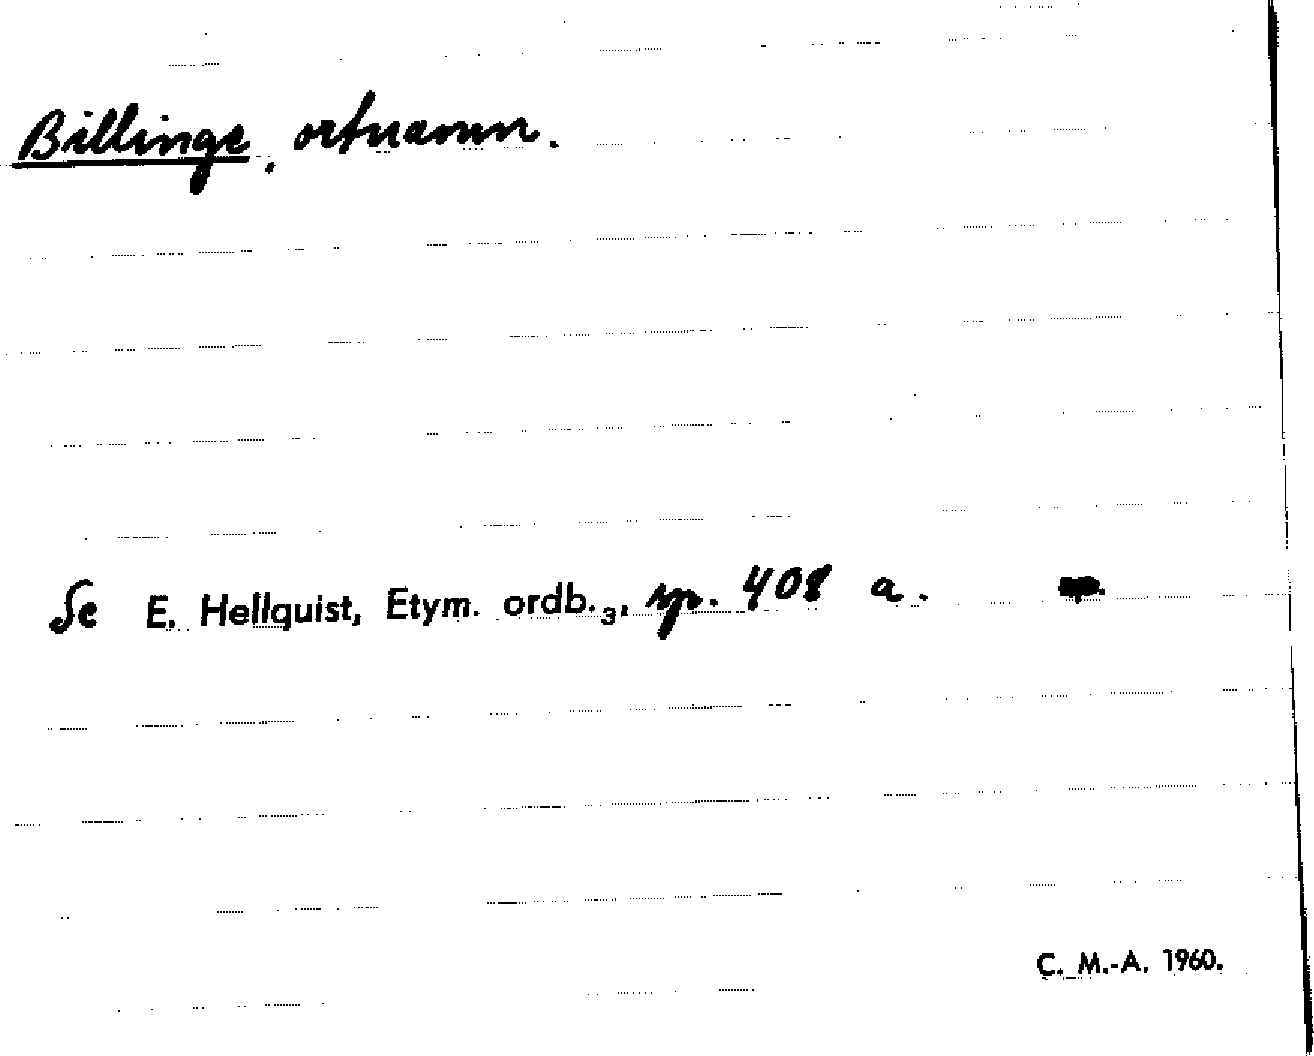 Billinge, ortnamn.
Se E. Hellquist, Etym. ordb.₃, sp. 408 a.
C. M.-A. 1960.